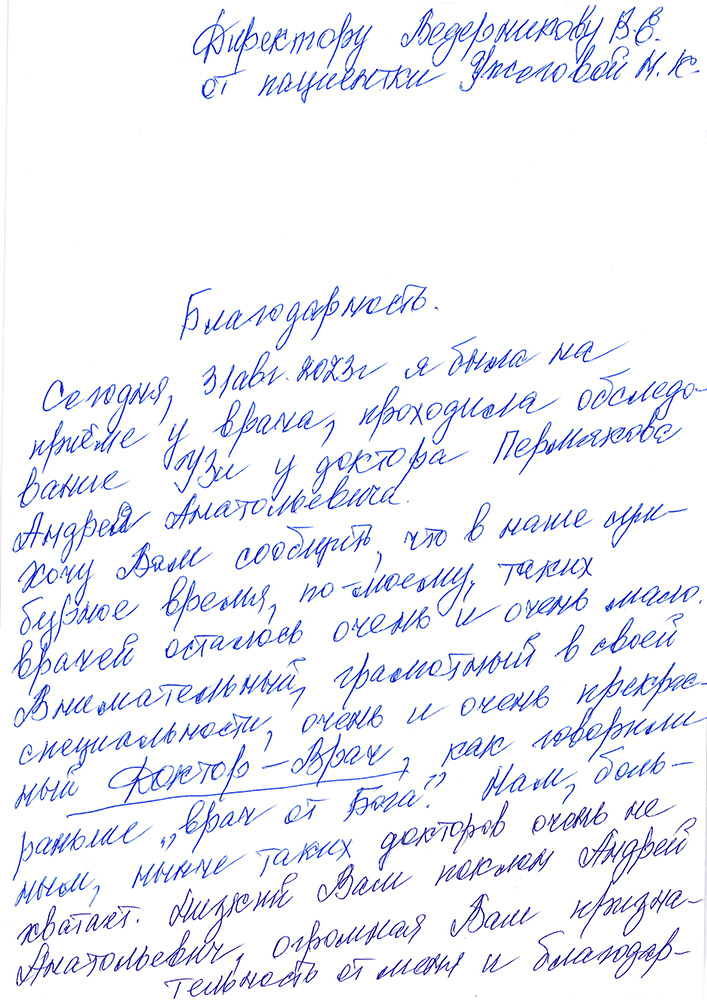 Директору Ведерникову В.Е.
от пациентки Ужеговой М.К.
Благодарность.
Сегодня, 31авг. 2023г я была на
приёме у врача, проходила обследо-
вание УЗИ у доктора Пермякова
Андрея Анатольевича.
Хочу Вам сообщить, что в наше
бурное время, по-моему, таких
врачей осталось очень и очень мало.
Внимательный, грамотный в своей
специальности, очень и очень прекрас-
ный Доктор-Врач, как говорили
раньше „врач от Бога". Нам, боль-
ным, ныне таких докторов очень не
хватает. Низкий Вам поклон Андрей
Анатольевич, огромная Вам призна-
тельность от меня и благодар-